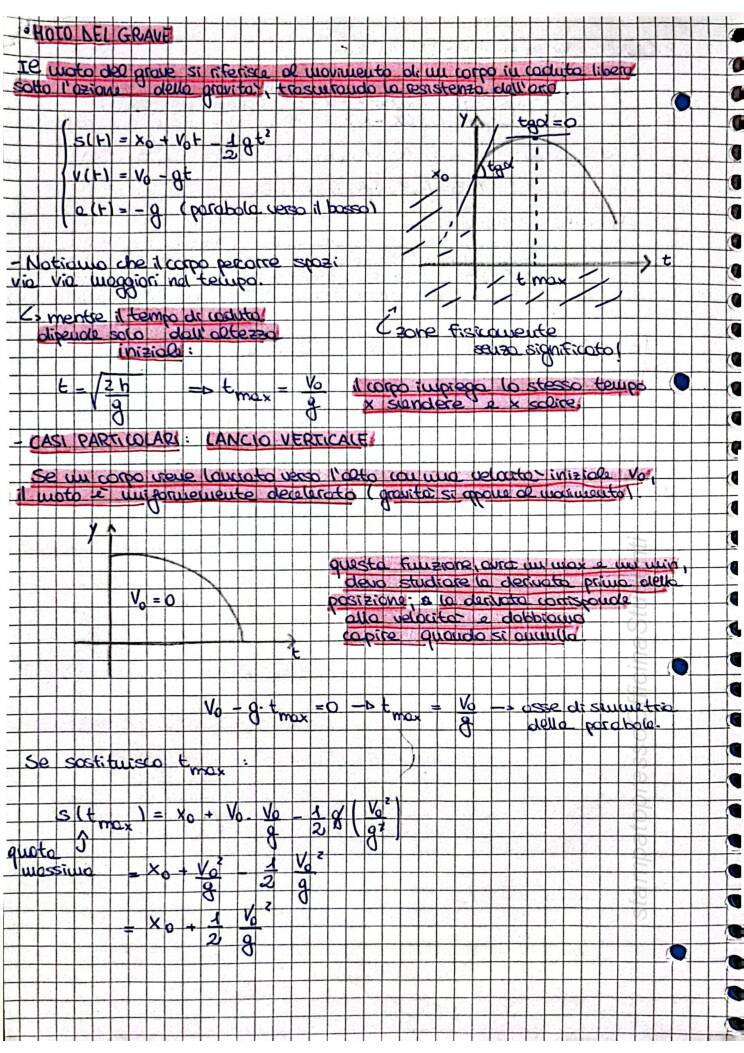 • MOTO DEL GRAVE
Il moto del grave si riferisce al movimento di un corpo in caduta libera
sotto l'azione della gravità, trascurando la resistenza dell'aria.
s(t) = x₀ + v₀t - 1/2 gt²
v(t) = v₀ - gt
a(t) = -g (parabola verso il basso)
y
tgα=0
x₀
tgα
t
t max
- Notiamo che il corpo percorre spazi
via via maggiori nel tempo.
↳ mentre il tempo di caduta
dipende solo dall'altezza
iniziale:
zone fisicamente
senza significato!
t = √(2h/g) ⇒ t_max = v₀/g il corpo impiega lo stesso tempo
x scendere e x salire
- CASI PARTICOLARI: LANCIO VERTICALE
Se un corpo viene lanciato verso l'alto con una velocità iniziale v₀,
il moto è uniformemente decelerato (gravità si oppone al movimento)
y
v₀ = 0
t
questa funzione, avrà un max e un min,
devo studiare la derivata prima della
posizione; la derivata corrisponde
alla velocità e dobbiamo
capire quando si annulla
v₀ - g · t_max = 0 → t_max = v₀/g → asse di simmetria
della parabola.
Se sostituisco t_max :
s(t_max) = x₀ + v₀ · v₀/g - 1/2 g (v₀²/g²)
quota
massima = x₀ + v₀²/g - 1/2 v₀²/g
= x₀ + 1/2 v₀²/g